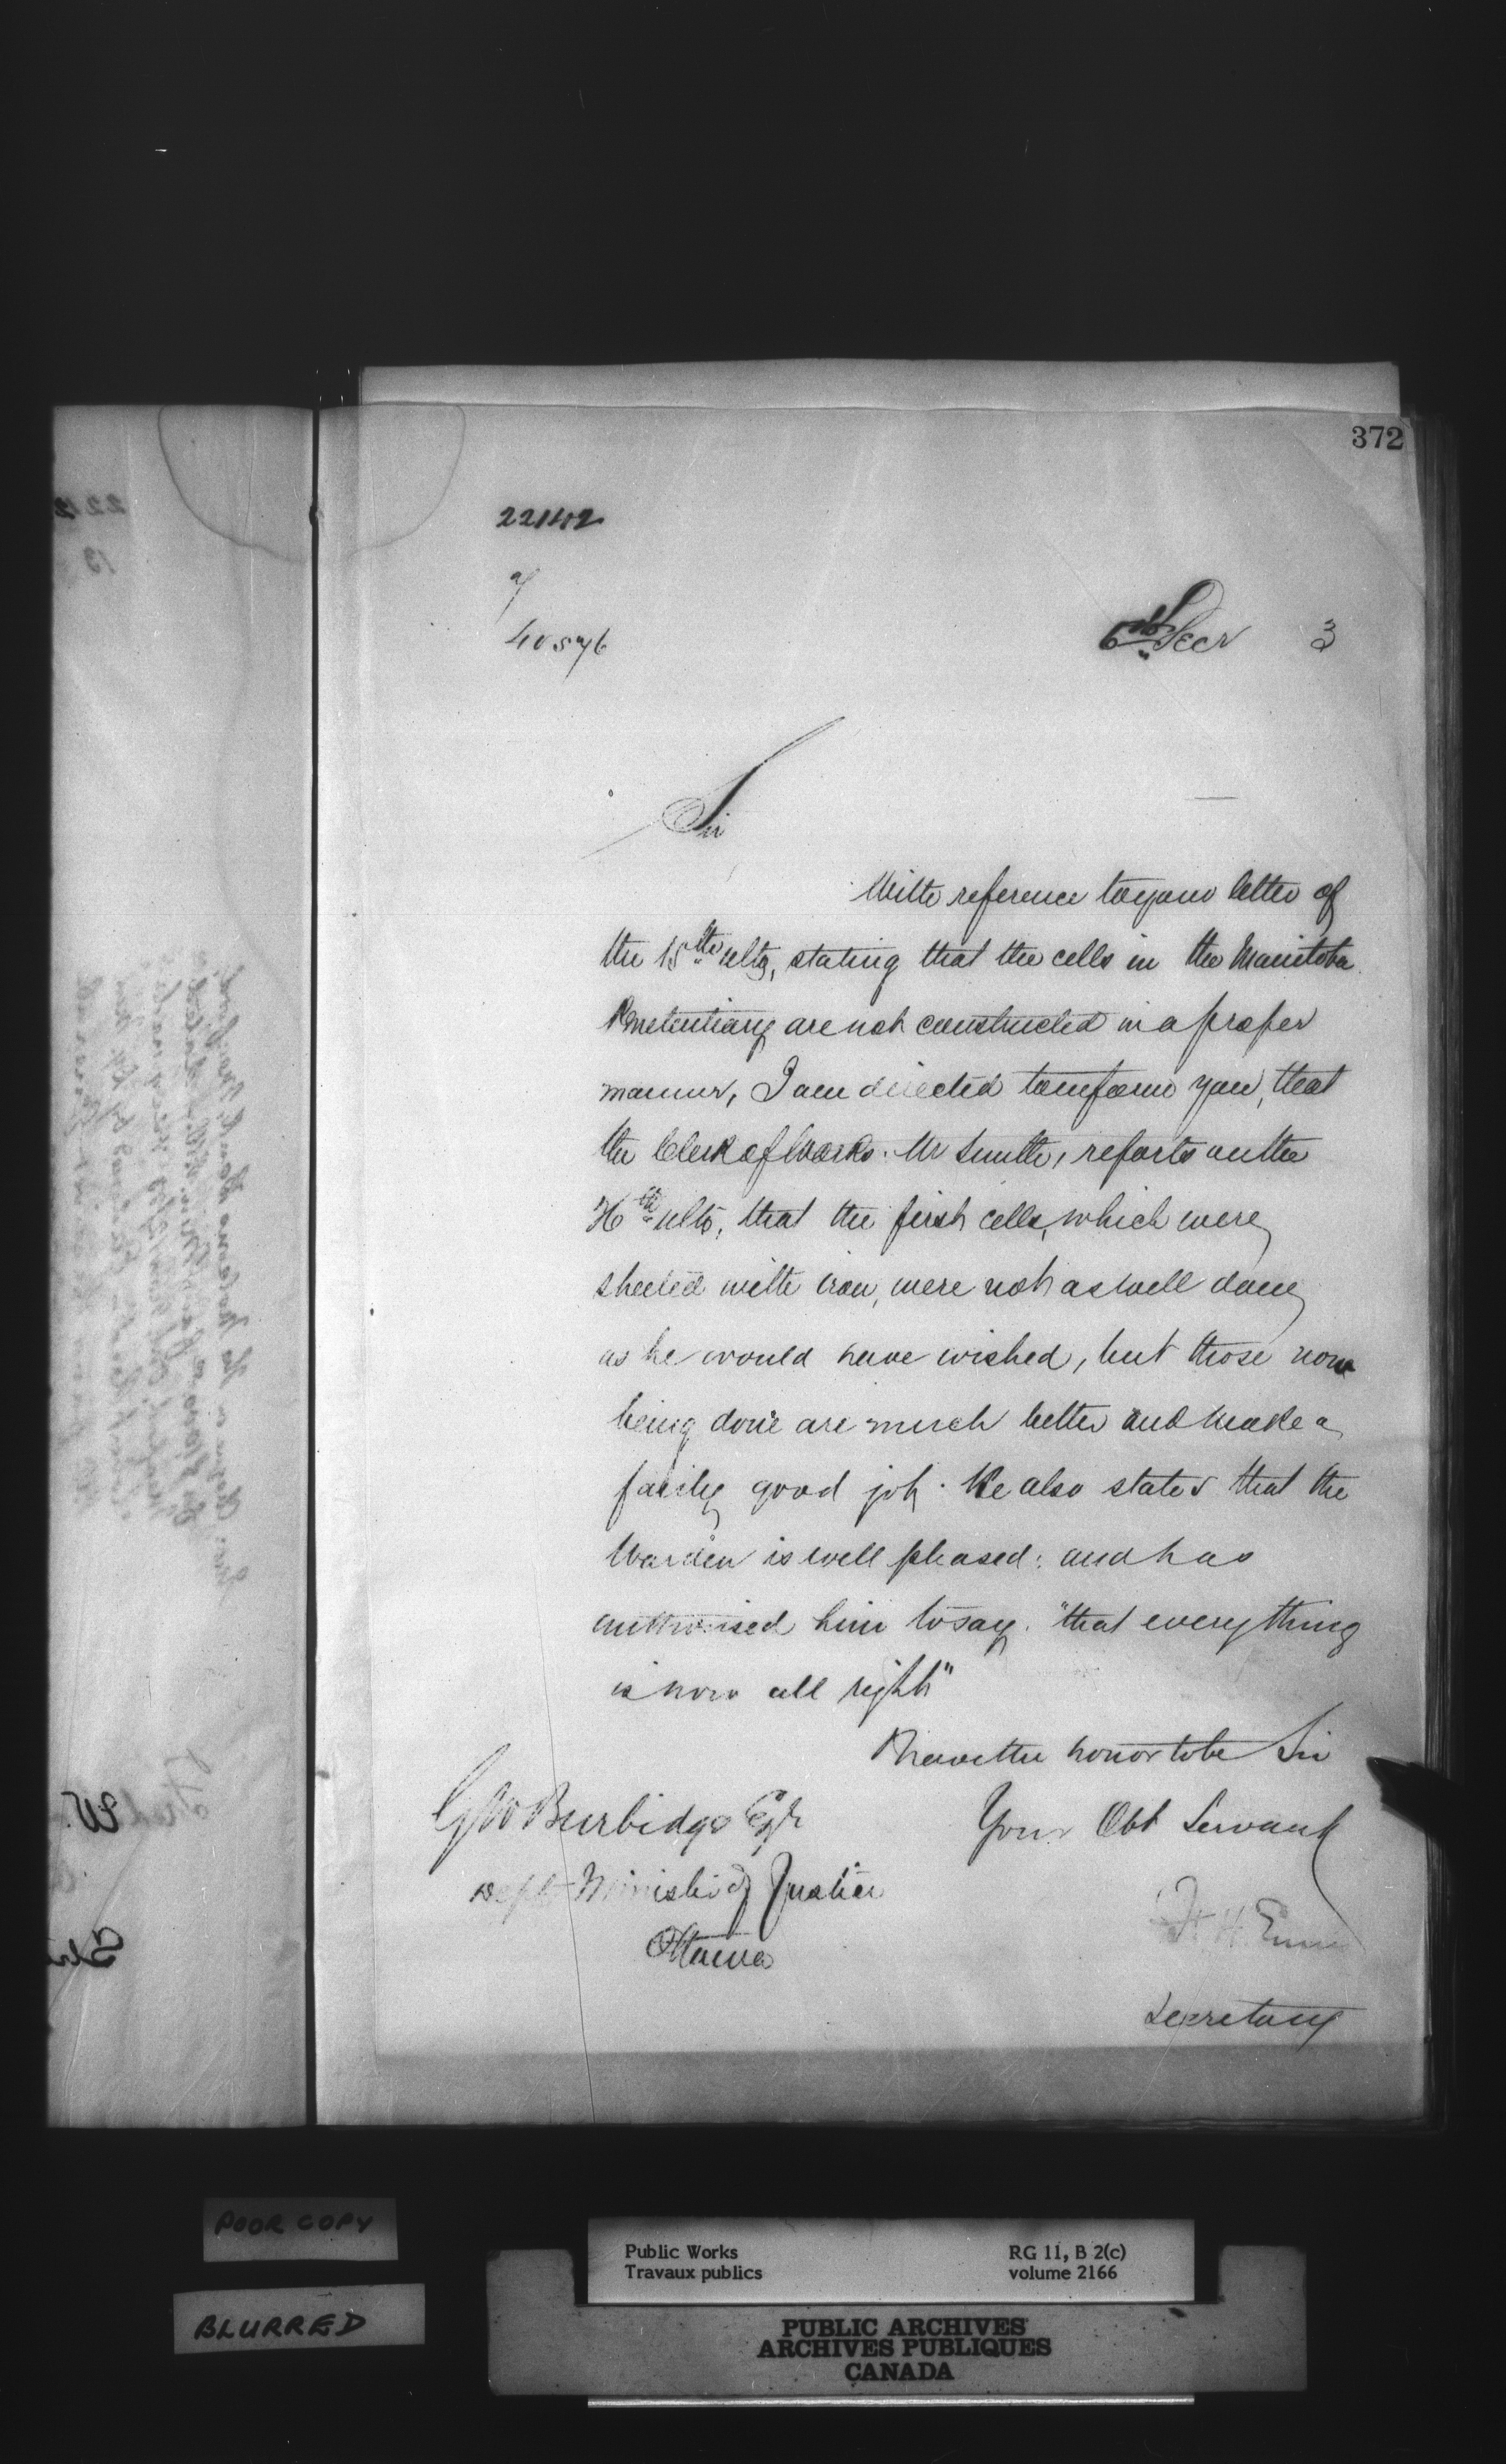 372
22142
a/
40576
6th Decr 3
Sir
With reference to your letter of
the 15th ulto, stating that the cells in the Manitoba
Penetentiary are not constructed in a proper
manner, I am directed to inform you, that
the Clerk of Works. Mr Smith, reports on the
26th ulto, that the first cells, which were
sheeted with iron, were not as well done
as he would have wished, but those now
being done are much better and make a
fairly good job. He also states that the
Warden is well pleased: and has
authorised him to say. "that everything
is now all right"
I have the honor to be Sir
Your Obt Servant
G W Burbidge Esqr
Depty Minister of Justice
Ottawa
F. H. Ennis
Secretary
POOR COPY
BLURRED
Public Works
Travaux publics
RG 11, B 2(c)
volume 2166
PUBLIC ARCHIVES
ARCHIVES PUBLIQUES
CANADA